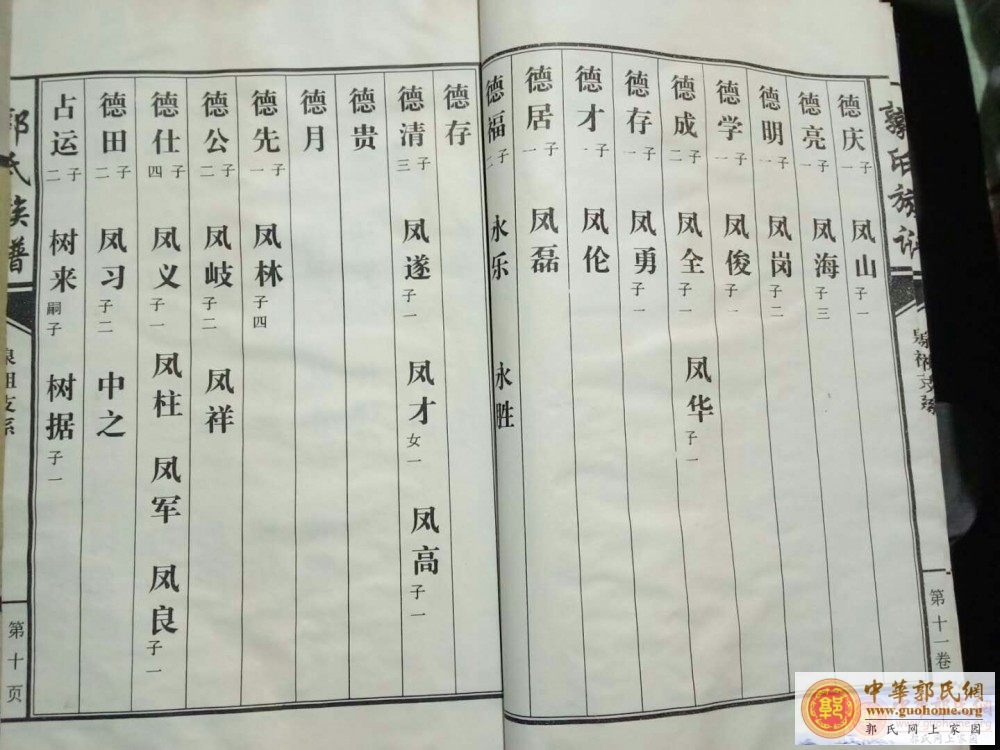 郭氏族谱
第十一卷
德庆 子一 凤山 子一
德亮 子一 凤海 子三
德明 子一 凤岗 子二
德学 子一 凤俊 子一
德成 子二 凤全 子一 凤华 子一
德存 子一 凤勇 子一
德才 子一 凤伦
德居 子一 凤磊
德福 子二 永乐 永胜
德存
德清 子三 凤遂 子一 凤才 女一 凤高 子一
德贵
德月
德先 子一 凤林 子四
德公 子二 凤岐 子二 凤祥
德仕 子四 凤义 子一 凤柱 凤军 凤良 子一
德田 子二 凤习 子二 中之
占运 子二 树来 嗣子 树据 子一
郭氏族谱
泉祖支系
第十页
中華郭氏網
www.guohome.org
郭氏网上家园